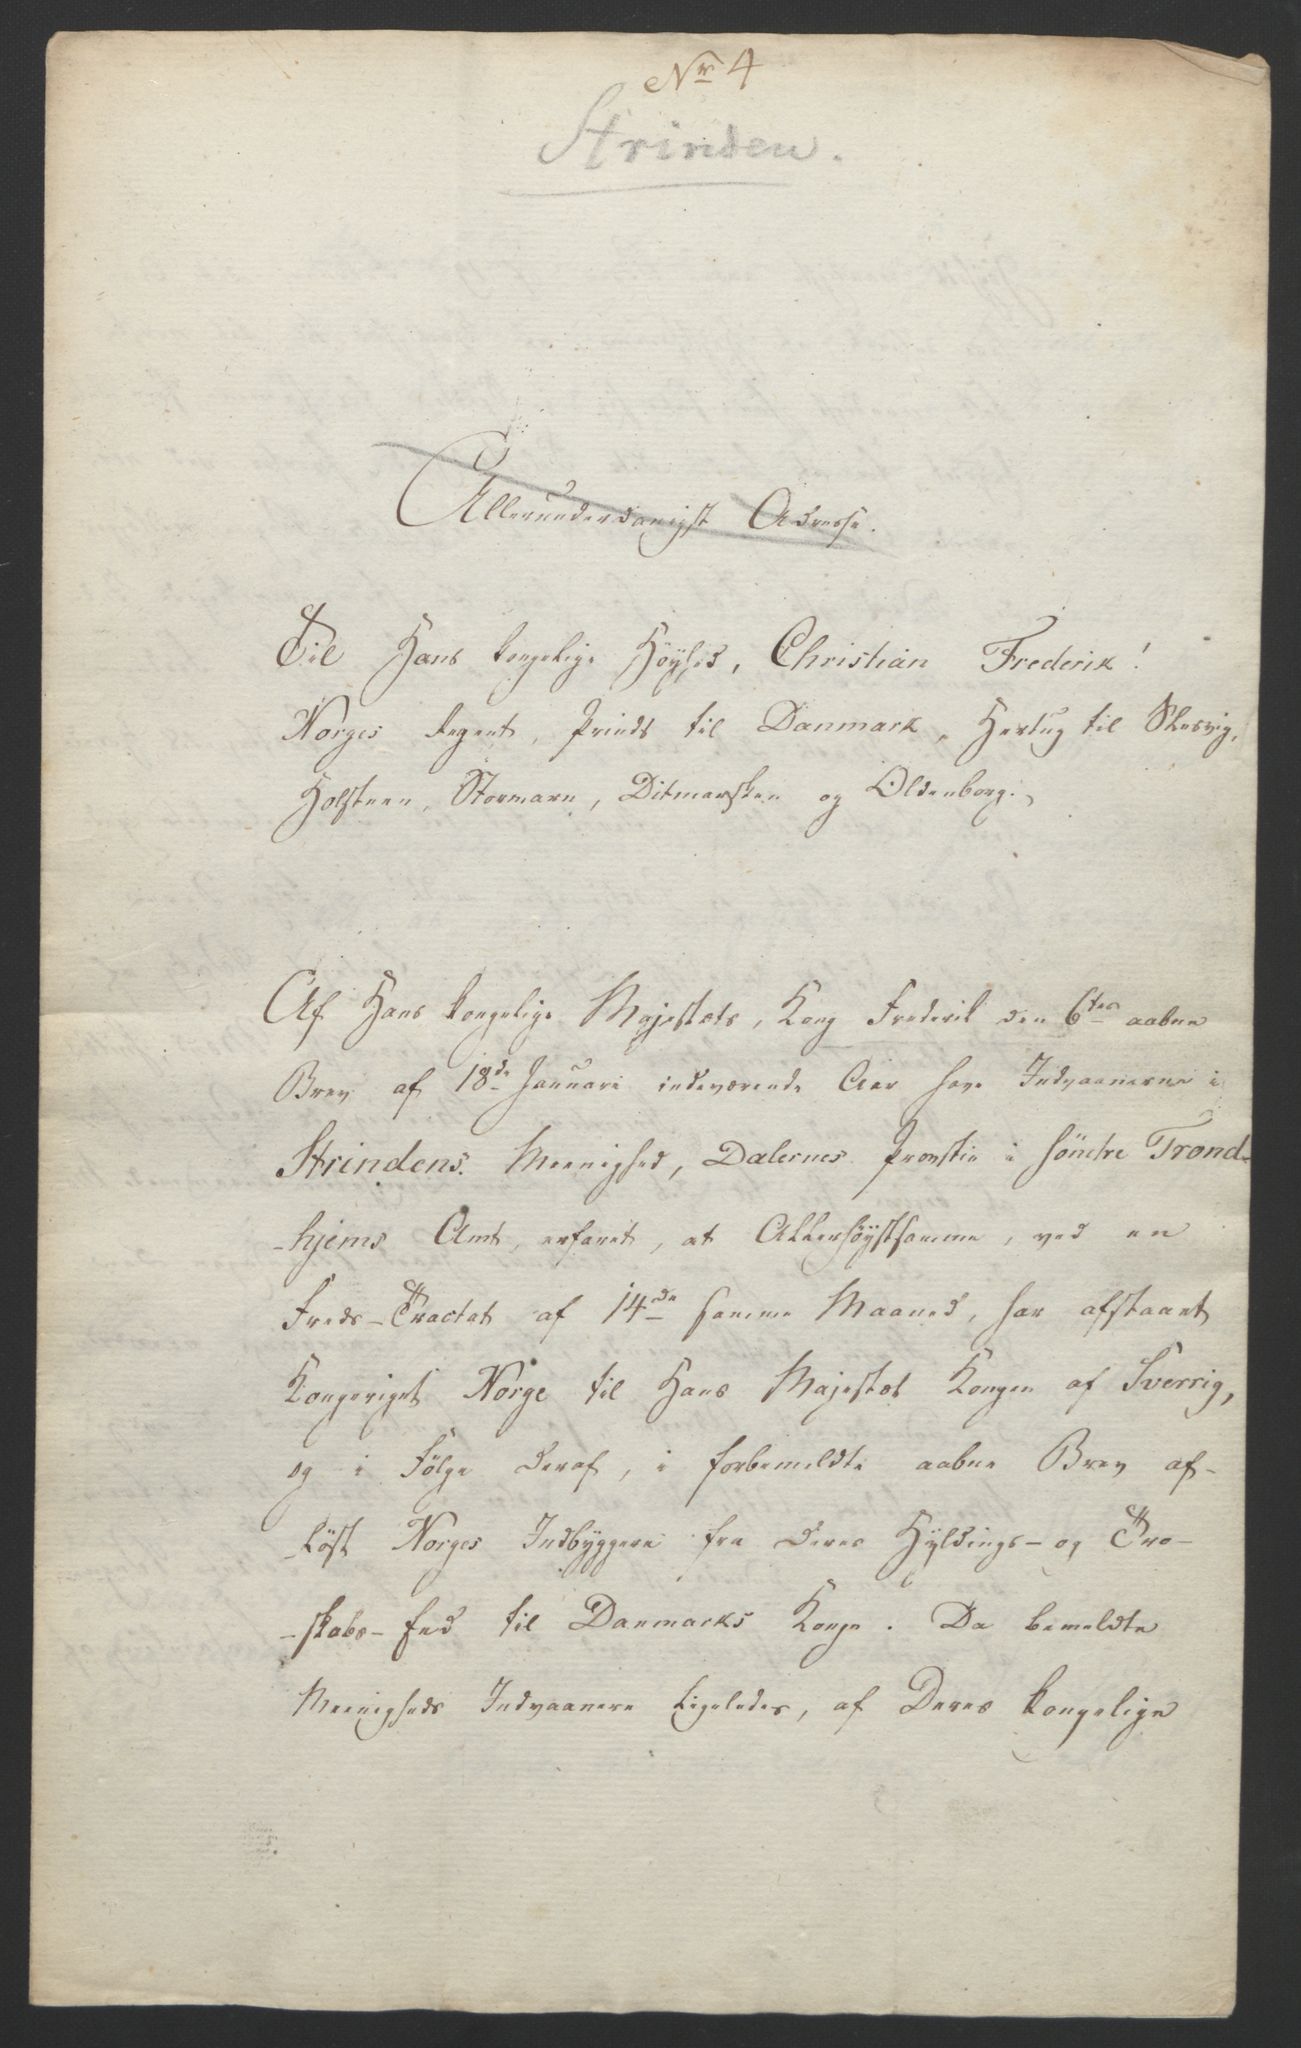 Nr 4
Strinden.
Allerunderdanigst Adresse.
Til Hans kongelige Höyhed, Christian Frederik!
Norges Regent, Prinds til Danmark, Hertug til Slesvig,
Holsteen, Stormarn, Ditmarsken og Oldenborg.
Af Hans kongelige Majestæts, Kong Frederik den 6tes aabne
Brev af 18de Januari indeværende Aar have Indvaanerne i
Strindens Meenighed, Dalernes Provstie i söndre Trond-
-hjems Amt, erfaret, at Allerhöystsamme, ved en
Freds-Tractat af 14de samme Maaned, har afstaaet
Kongeriget Norge til Hans Majestæt Kongen af Sverrig,
og i Fölge deraf, i forbemeldte aabne Brev af-
-löst Norges Indbyggere fra deres Hyldings- og Tro-
-skabs-Eed til Danmarks Konge. Da bemeldte
Meenigheds Indvaanere ligeledes, af Deres kongelige